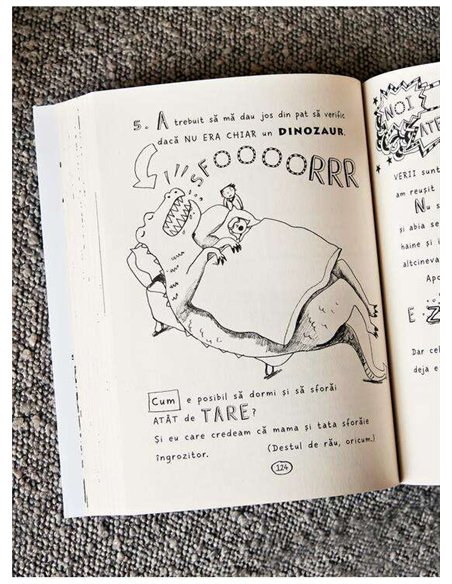 5. A trebuit să mă dau jos din pat să verific
dacă NU ERA CHIAR un DINOZAUR.
SFOOOORRR
Cum e posibil să dormi și să sforăi
ATÂT de TARE?
Și eu care credeam că mama și tata sforăie
îngrozitor. (Destul de rău, oricum.)
124
NOI
VERII sunt
am reușit
Nu s
și abia se
haine și i
altcineva
Apo
E
Dar cel
deja e